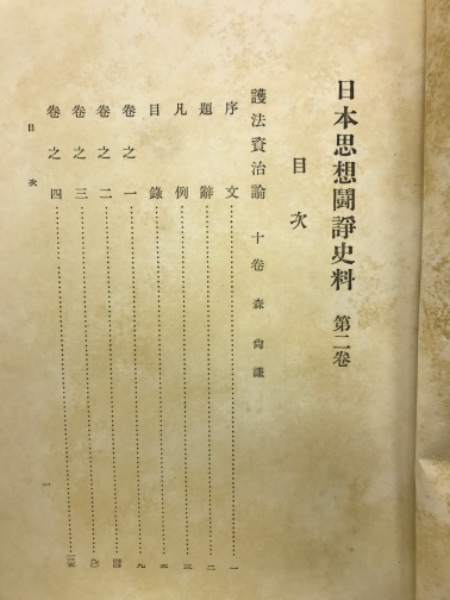 日本思想闘諍史料 第二卷
目次
護法資治論 十卷 森尙謙
序文 一
題辭 二
凡例 三
目錄 五
卷之一 九
卷之二
卷之三
卷之四
目次
一